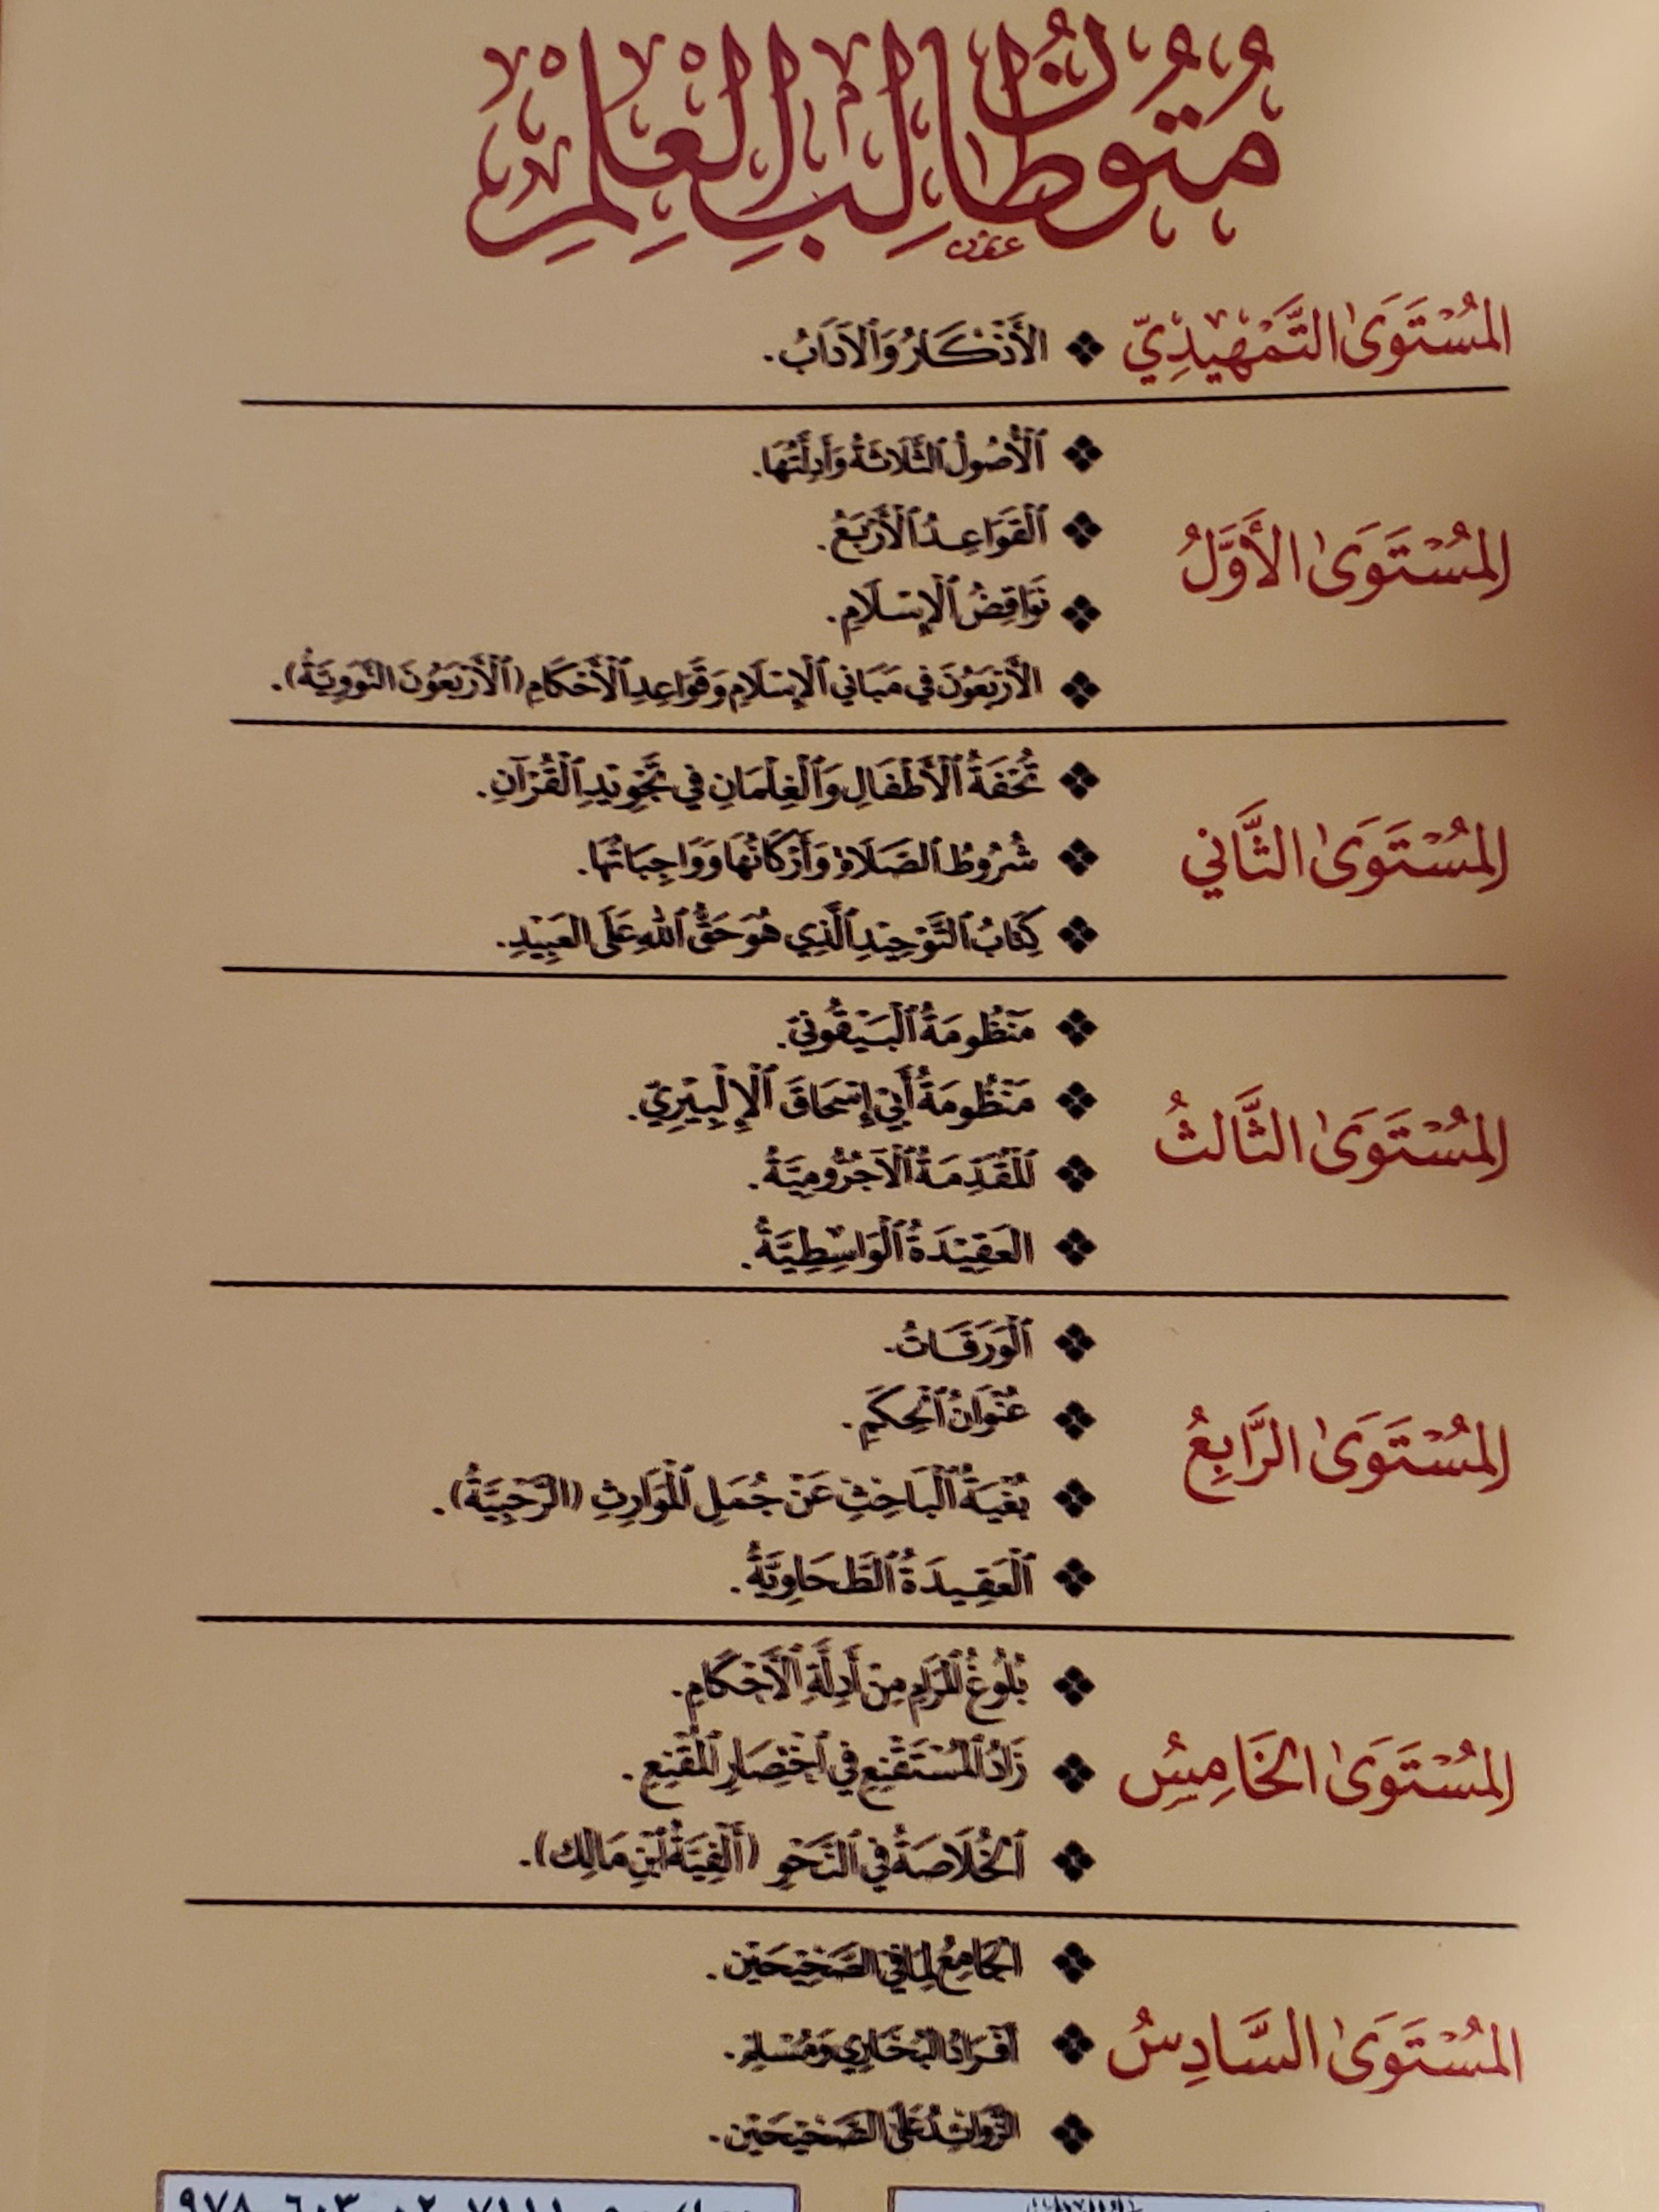 مُتُونُ طَالِبِ العِلْمِ
المُسْتَوَىٰ التَّمْهِيدِيّ
الأَذْكَارُ وَٱلْآدَابُ.
المُسْتَوَىٰ الأَوَّلُ
ٱلْأُصُولُ ٱلثَّلَاثَةُ وَأَدِلَّتُهَا.
ٱلْقَوَاعِدُ ٱلْأَرْبَعُ.
نَوَاقِضُ ٱلْإِسْلَامِ.
الأَرْبَعُونَ فِي مَبَانِي ٱلْإِسْلَامِ وَقَوَاعِدِ ٱلْأَحْكَامِ (ٱلْأَرْبَعُونَ النَّوَوِيَّةُ).
المُسْتَوَىٰ الثَّانِي
تُحْفَةُ ٱلْأَطْفَالِ وَٱلْغِلْمَانِ فِي تَجْوِيدِ ٱلْقُرْآنِ.
شُرُوطُ ٱلصَّلَاةِ وَأَرْكَانُهَا وَوَاجِبَاتُهَا.
كِتَابُ ٱلتَّوْحِيدِ ٱلَّذِي هُوَ حَقُّ ٱللهِ عَلَى العَبِيْدِ.
المُسْتَوَىٰ الثَّالثُ
مَنْظُومَةُ ٱلْبَيْقُونِيِّ.
مَنْظُومَةُ أَبِي إِسْحَاقَ ٱلْإِلْبِيْرِيِّ.
المُقَدِّمَةُ ٱلْآجُرُّومِيَّةُ.
العَقِيْدَةُ ٱلْوَاسِطِيَّةُ.
المُسْتَوَىٰ الرَّابِعُ
ٱلْوَرَقَاتُ.
عُنْوَانُ ٱلْحِكَمِ.
بُغْيَةُ ٱلْبَاحِثِ عَنْ جُمَلِ المَوَارِثِ (الرَّحْبِيَّةُ).
ٱلْعَقِيدَةُ ٱلطَّحَاوِيَّةُ.
المُسْتَوَىٰ الخَامِسُ
بُلُوغُ المَرَامِ مِنْ أَدِلَّةِ ٱلْأَحْكَامِ.
زَادُ ٱلْمُسْتَقْنِعِ فِي ٱخْتِصَارِ ٱلْمُقْنِعِ.
ٱلْخُلَاصَةُ فِي ٱلنَّحْوِ (أَلْفِيَّةُ ٱبْنِ مَالِك).
المُسْتَوَىٰ السَّادِسُ
الجَامِعُ لِمَا فِي الصَّحِيْحَيْنِ.
أَفْرَادُ البُخَارِي وَمُسْلِمٍ.
الزَّوَائِدُ عَلَى الصَّحِيْحَيْنِ.